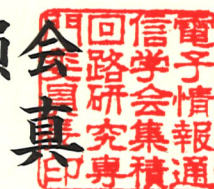 電子情報通
信学会集積
回路研究専
門委員長印
会真